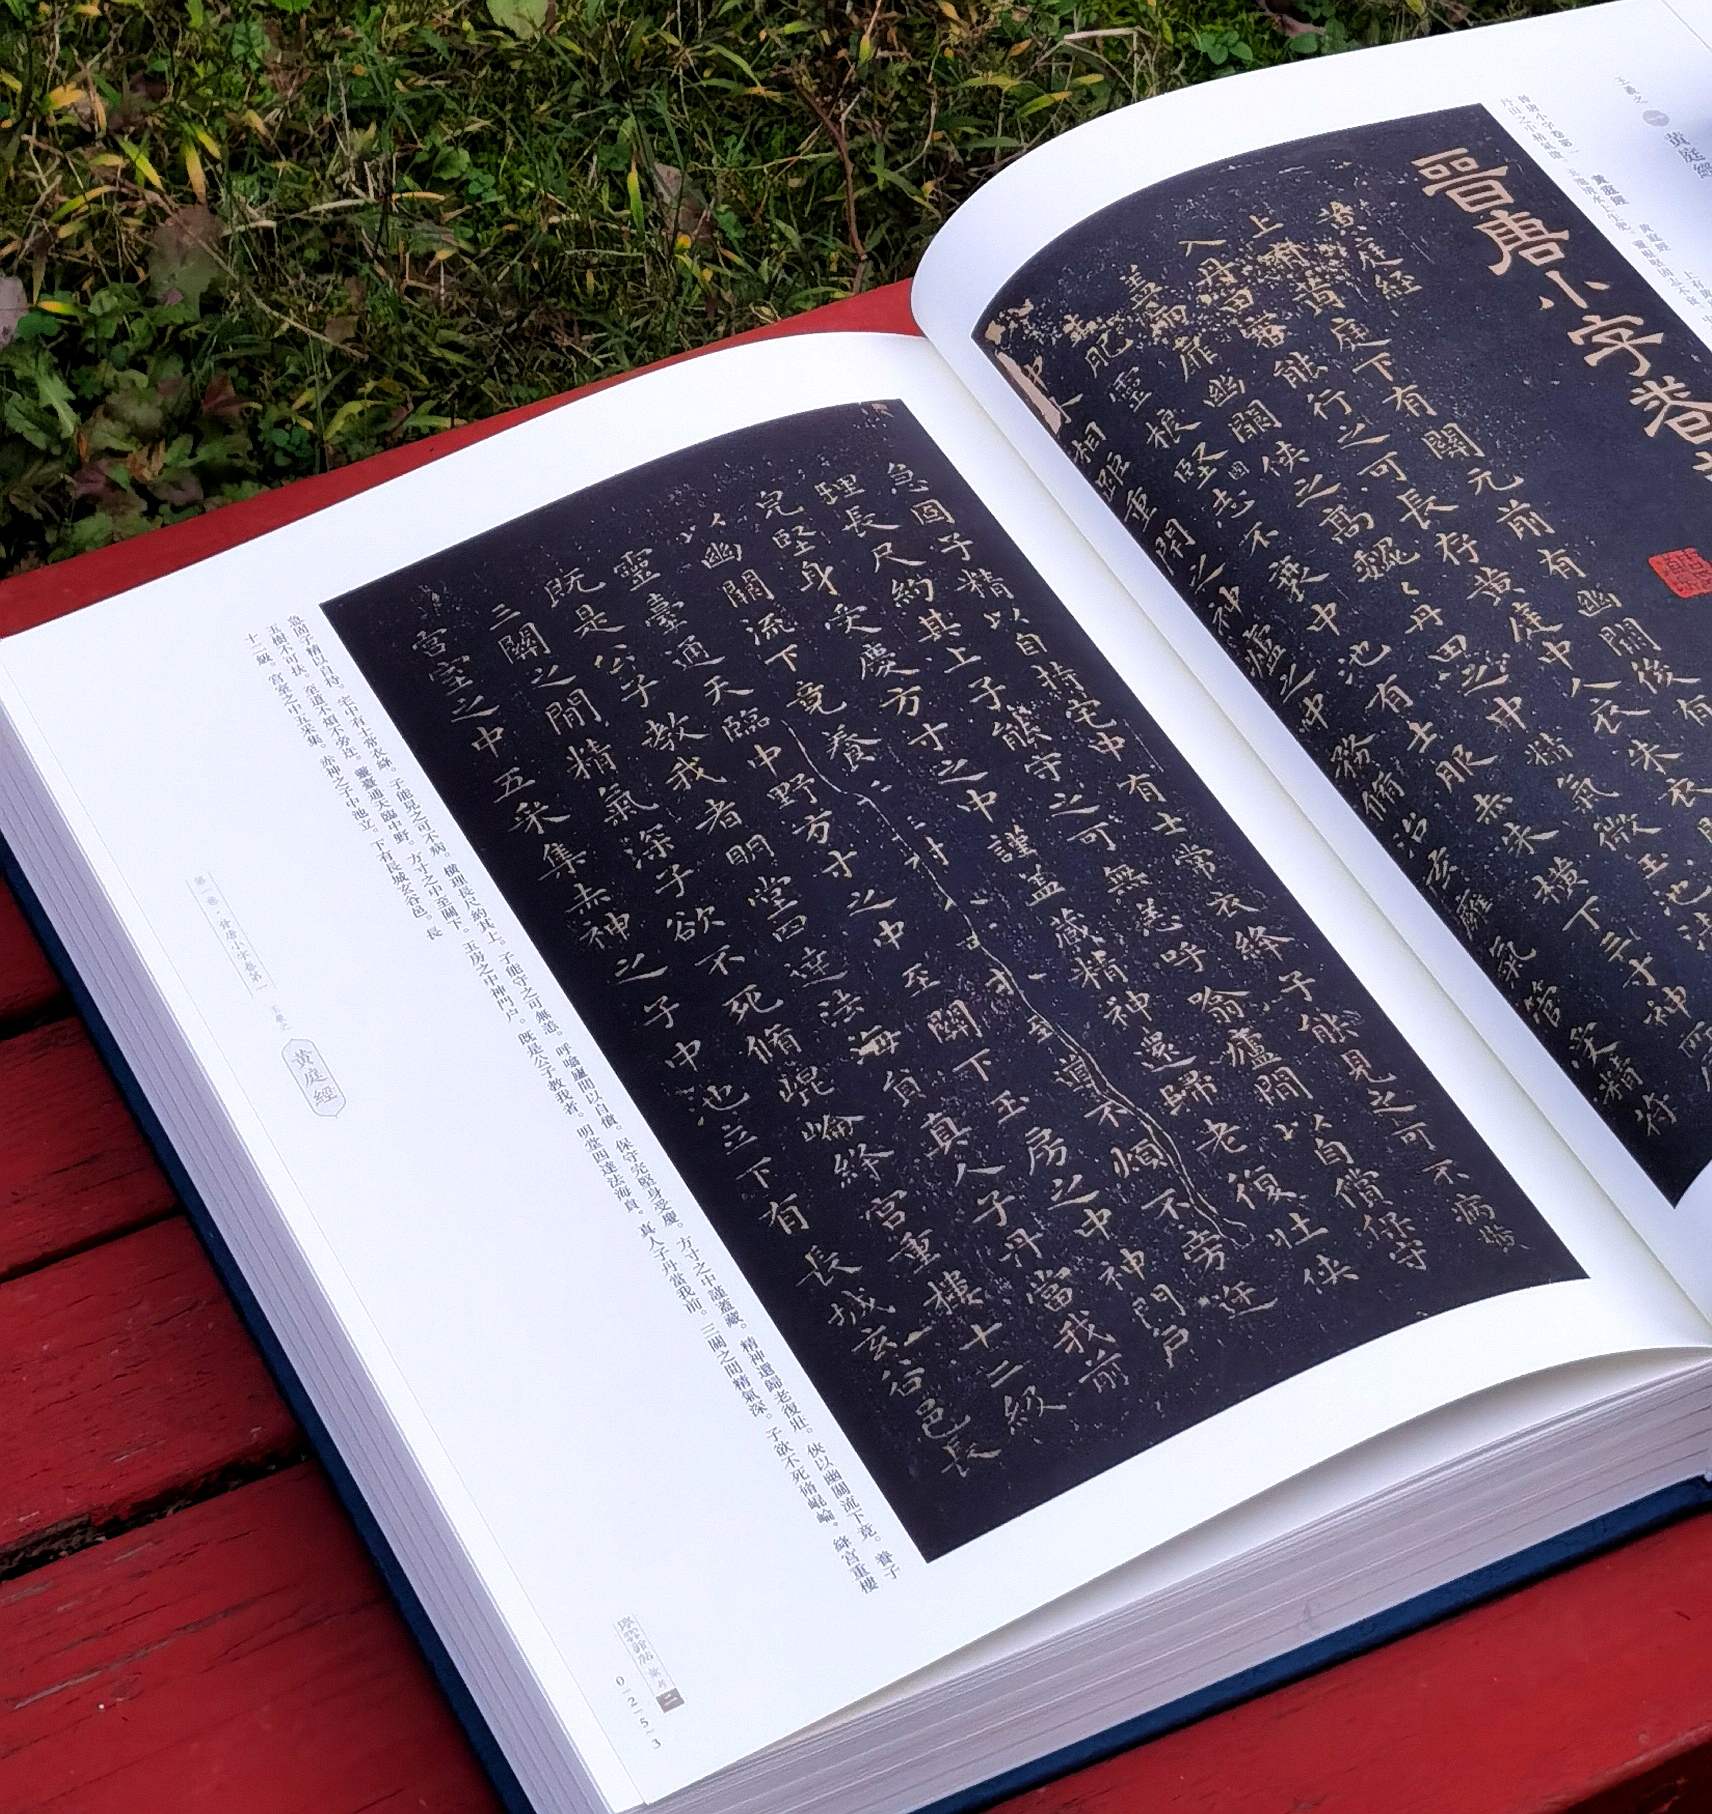 王羲之 一 黄庭經
晉唐小字卷
黄庭経
上有黄庭下有關元前有幽闕後有
入丹田審能行之可長存黄庭中人衣朱衣
蓋兩扉幽闕俠之高巍巍丹田之中精氣微玉池清
生肥靈根堅固志不衰中池有士服赤朱橫下三寸神所
相距重閉之神廬之中務脩治玄癰氣管受精符
急固子精以自持宅中有士常衣絳子能見之可不病橫
理長尺約其上子能守之可無恙呼噏廬間以自償保守
完堅身受慶方寸之中謹蓋藏精神還歸老復壯俠
以幽闕流下竟養
至道不煩不旁迕
靈臺通天臨中野方寸之中至關下玉房之中神門戶
既是公子教我者明堂四達法海員真人子丹當我前
三關之間精氣深子欲不死脩崐崘絳宮重樓十二級
宮室之中五采集赤神之子中池立下有長城玄谷邑長
急固子精以自持。宅中有士常衣絳。子能見之可不病。橫理長尺約其上。子能守之可無恙。呼噏廬間以自償。保守完堅身受慶。方寸之中謹蓋藏。精神還歸老復壯。俠以幽闕流下竟。養子
玉樹不可扶。至道不煩不旁迕。靈臺通天臨中野。方寸之中至關下。玉房之中神門户。既是公子教我者。明堂四達法海員。真人子丹當我前。三關之間精氣深。子欲不死脩崐崘。絳宮重樓
十二級。宮室之中五采集。赤神之子中池立。下有長城玄谷邑。長
第一卷·晉唐小字卷第一 王羲之 黄庭經
鄰蘇館帖 二
0-2-5-3